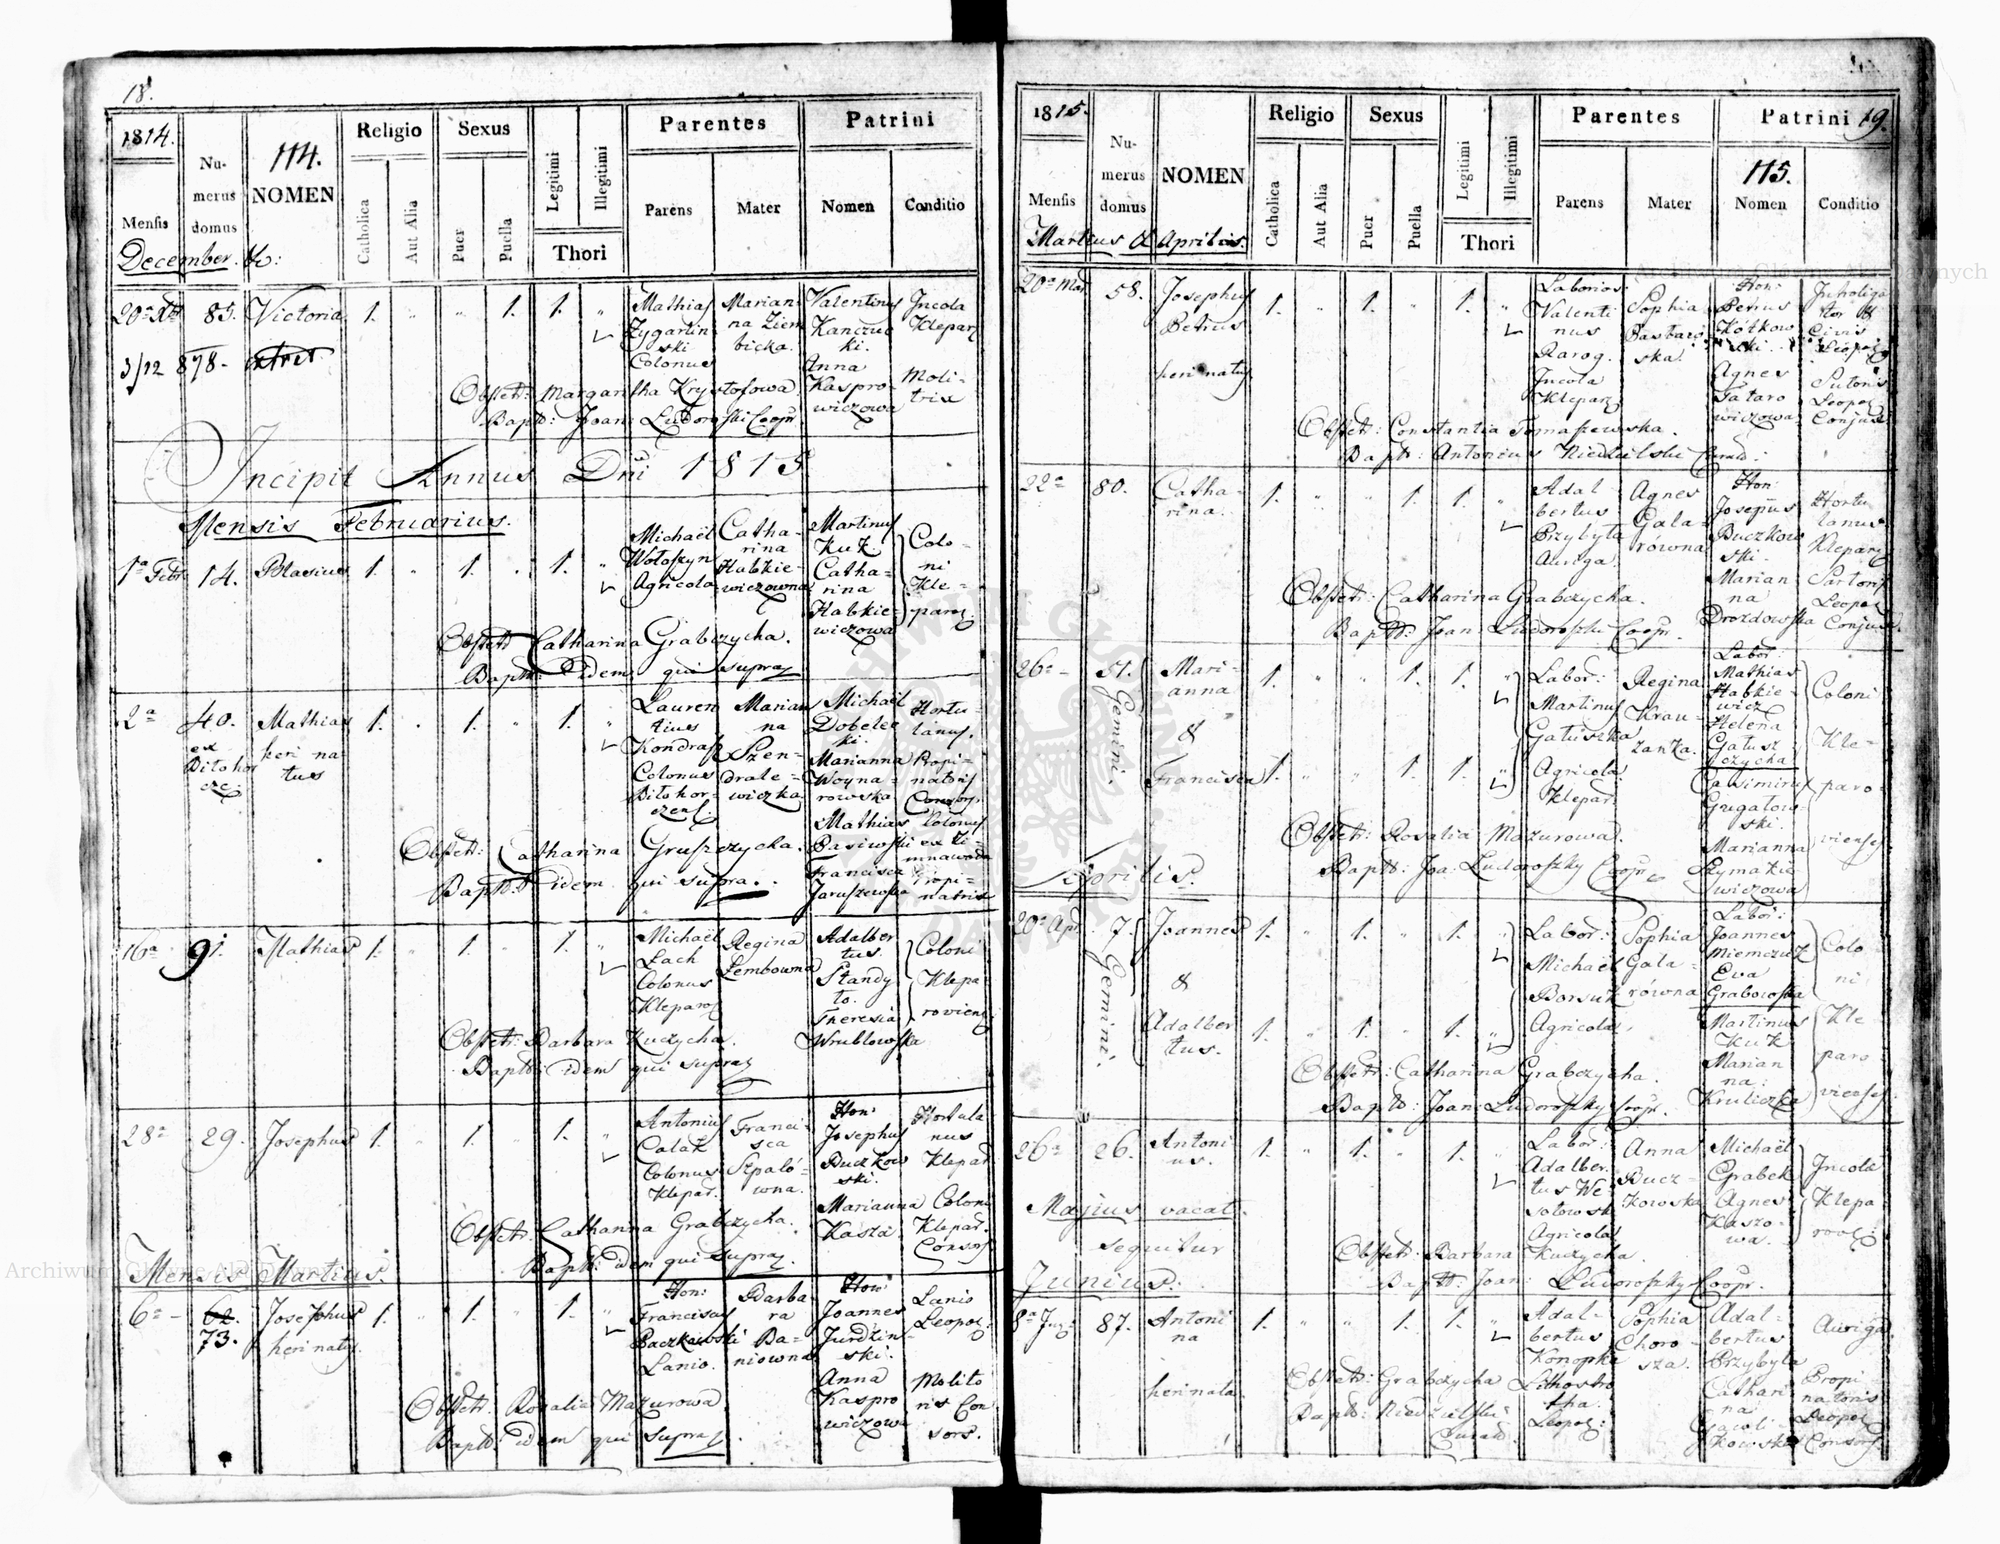 18.
1814.
Numerus domus
114.
NOMEN
Religio
Sexus
Legitimi
Illegitimi
Parentes
Patrini
Mensis
Catholica
Aut Alia
Puer
Puella
Thori
Parens
Mater
Nomen
Conditio
December
20a Xbr 85. Victoria 1. 1. 1.
Mathias Zygartinski Colonus
Marianna Ziembicka.
Valentinus Kanczucki. Anna Kasprowiczowa
Incola Klepar
Molitrix
3/12 878.
Obstetr: Margaritha Krystofowa
Bapt: Joan: Ludoroski Coopr
Incipit Annus Dni 1815
Mensis Februarius.
1a Febr 14. Blasius 1. 1. 1.
Michaël Wołoszyn Agricola
Catharina Habkiewiczowna
Martinus Kuk. Catharina Habkiewiczowa
Coloni Kleparz
Obstetr Catharina Grabczycha.
Bapt: idem qui supra
2a 40. ex Bilohorcze Mathias heri natus 1. 1. 1.
Laurentius Kondras Colonus Bilohorczens.
Marianna Szendralewiczka
Michaël Dobelecki. Marianna Woynarowska
Hortulanus. Propinatoris Consors.
Mathias Pasiwski Francisca Jaruszewska
Colonus ex Zimnawoda Propinatrix
Obstetr: Catharina Gruszczycha.
Bapt: idem qui supra.
16a 91. Mathias 1. 1. 1.
Michaël Lach Colonus Klepar
Regina Lembowna
Adalbertus Standyto. Theresia Wrublowska
Coloni Kleparoviens
Obstetr: Barbara Kuczycha.
Bapt: idem qui supra
28a 29. Josephus 1. 1. 1.
Antonius Calak Colonus Klepar.
Francisca Szpalówna.
Hon: Josephus Buczkowski. Marianna Kasza.
Hortulanus Klepar. Coloni Klepar. Consors
Obstetr. Catharina Grabczycha.
Bapt: idem qui supra.
Mensis Martius.
6a 73. Josephus heri natus 1. 1. 1.
Hon: Franciscus Baczkowski Lanio.
Barbara Baniowna
Hon: Joannes Jurdzinski. Anna Kasprowiczowa
Lanio Leopol: Molitoris Consors.
Obstetr. Rosalia Mazurowa
Bapt: idem qui supra.
1815.
Numerus domus
NOMEN
Religio
Sexus
Legitimi
Illegitimi
Parentes
Patrini 19.
115.
Mensis
Catholica
Aut Alia
Puer
Puella
Thori
Parens
Mater
Nomen
Conditio
Martius & Aprilis.
20a Mar 58. Josephus Petrus heri natus 1. 1. 1.
Laborios Valentinus Rarog. Incola Klepar
Sophia
Hon: Petrus Kótkowski. Agnes Tatarowiczowa
Introligator & Civis Leopol Sutoris Leopol Conjux
Obstetr: Constantia Tomaszewska.
Bapt: Antonius Niedzielski Curad:
22a 80. Catharina. 1. 1. 1.
Adalbertus Przybyła Auriga.
Agnes Galarówna
Hon: Josephus Buczkowski. Marianna Drozdowska
Hortulanus Klepar Sartoris Leopol Conjux.
Obstetr: Catharina Grabczycha.
Bapt: Joan: Ludoroszki Coopr.
26a 51. Marianna & Francisca Gemini. 1. 1. 1.
1. 1. 1.
Labor: Martinus Gatuszka Agricola Klepar
Regina Krauzanka.
Labor: Mathias Habkiewicz Helena Gatuszczycha
Casimirus Gugatowski. Marianna Szymatkiewiczowa
Coloni Kleparovienses
Obstetr: Rosalia Mazurowa.
Bapt: Joa: Ludoroszky Coopr
Aprilis.
20a Apr. 7. Joannes & Adalbertus. Gemini. 1. 1. 1.
1. 1. 1.
Labor: Michaël Borsuk Agricola.
Sophia Galarówna
Labor: Joannes Niemczuk Eva Grabowska
Martinus Kuk Marianna: Kruliczka
Coloni Kleparovienses
Obstetr: Catharina Grabczycha.
Bapt: Joan: Ludoroszky Coopr.
26a 26. Antonius. 1. 1. 1.
Labor: Adalbertus Wesotowski Agricola
Anna Buczkowska
Michaël Grabek Agnes Kaszowa.
Incola
Obstetr: Barbara Kuczycha.
Bapt: Joan: Ludoroszky Coopr.
Majus vacat.
sequitur
Junius.
8a Jun: 87. Antonina heri nata. 1. 1. 1.
Adalbertus Konopka Lithostrotha. Leopol:
Sophia Chorosza.
Adalbertus Przybyła Catharina
Auriga. Propinatoris Leopol Consors.
Obstetr: Grabczycha
Bapt: Niedzielski Curad.
Archiwum Główne Akt Dawnych
Archiwum Główne Akt Dawnych
ARCHIWUM GŁÓWNE AKT DAWNYCH